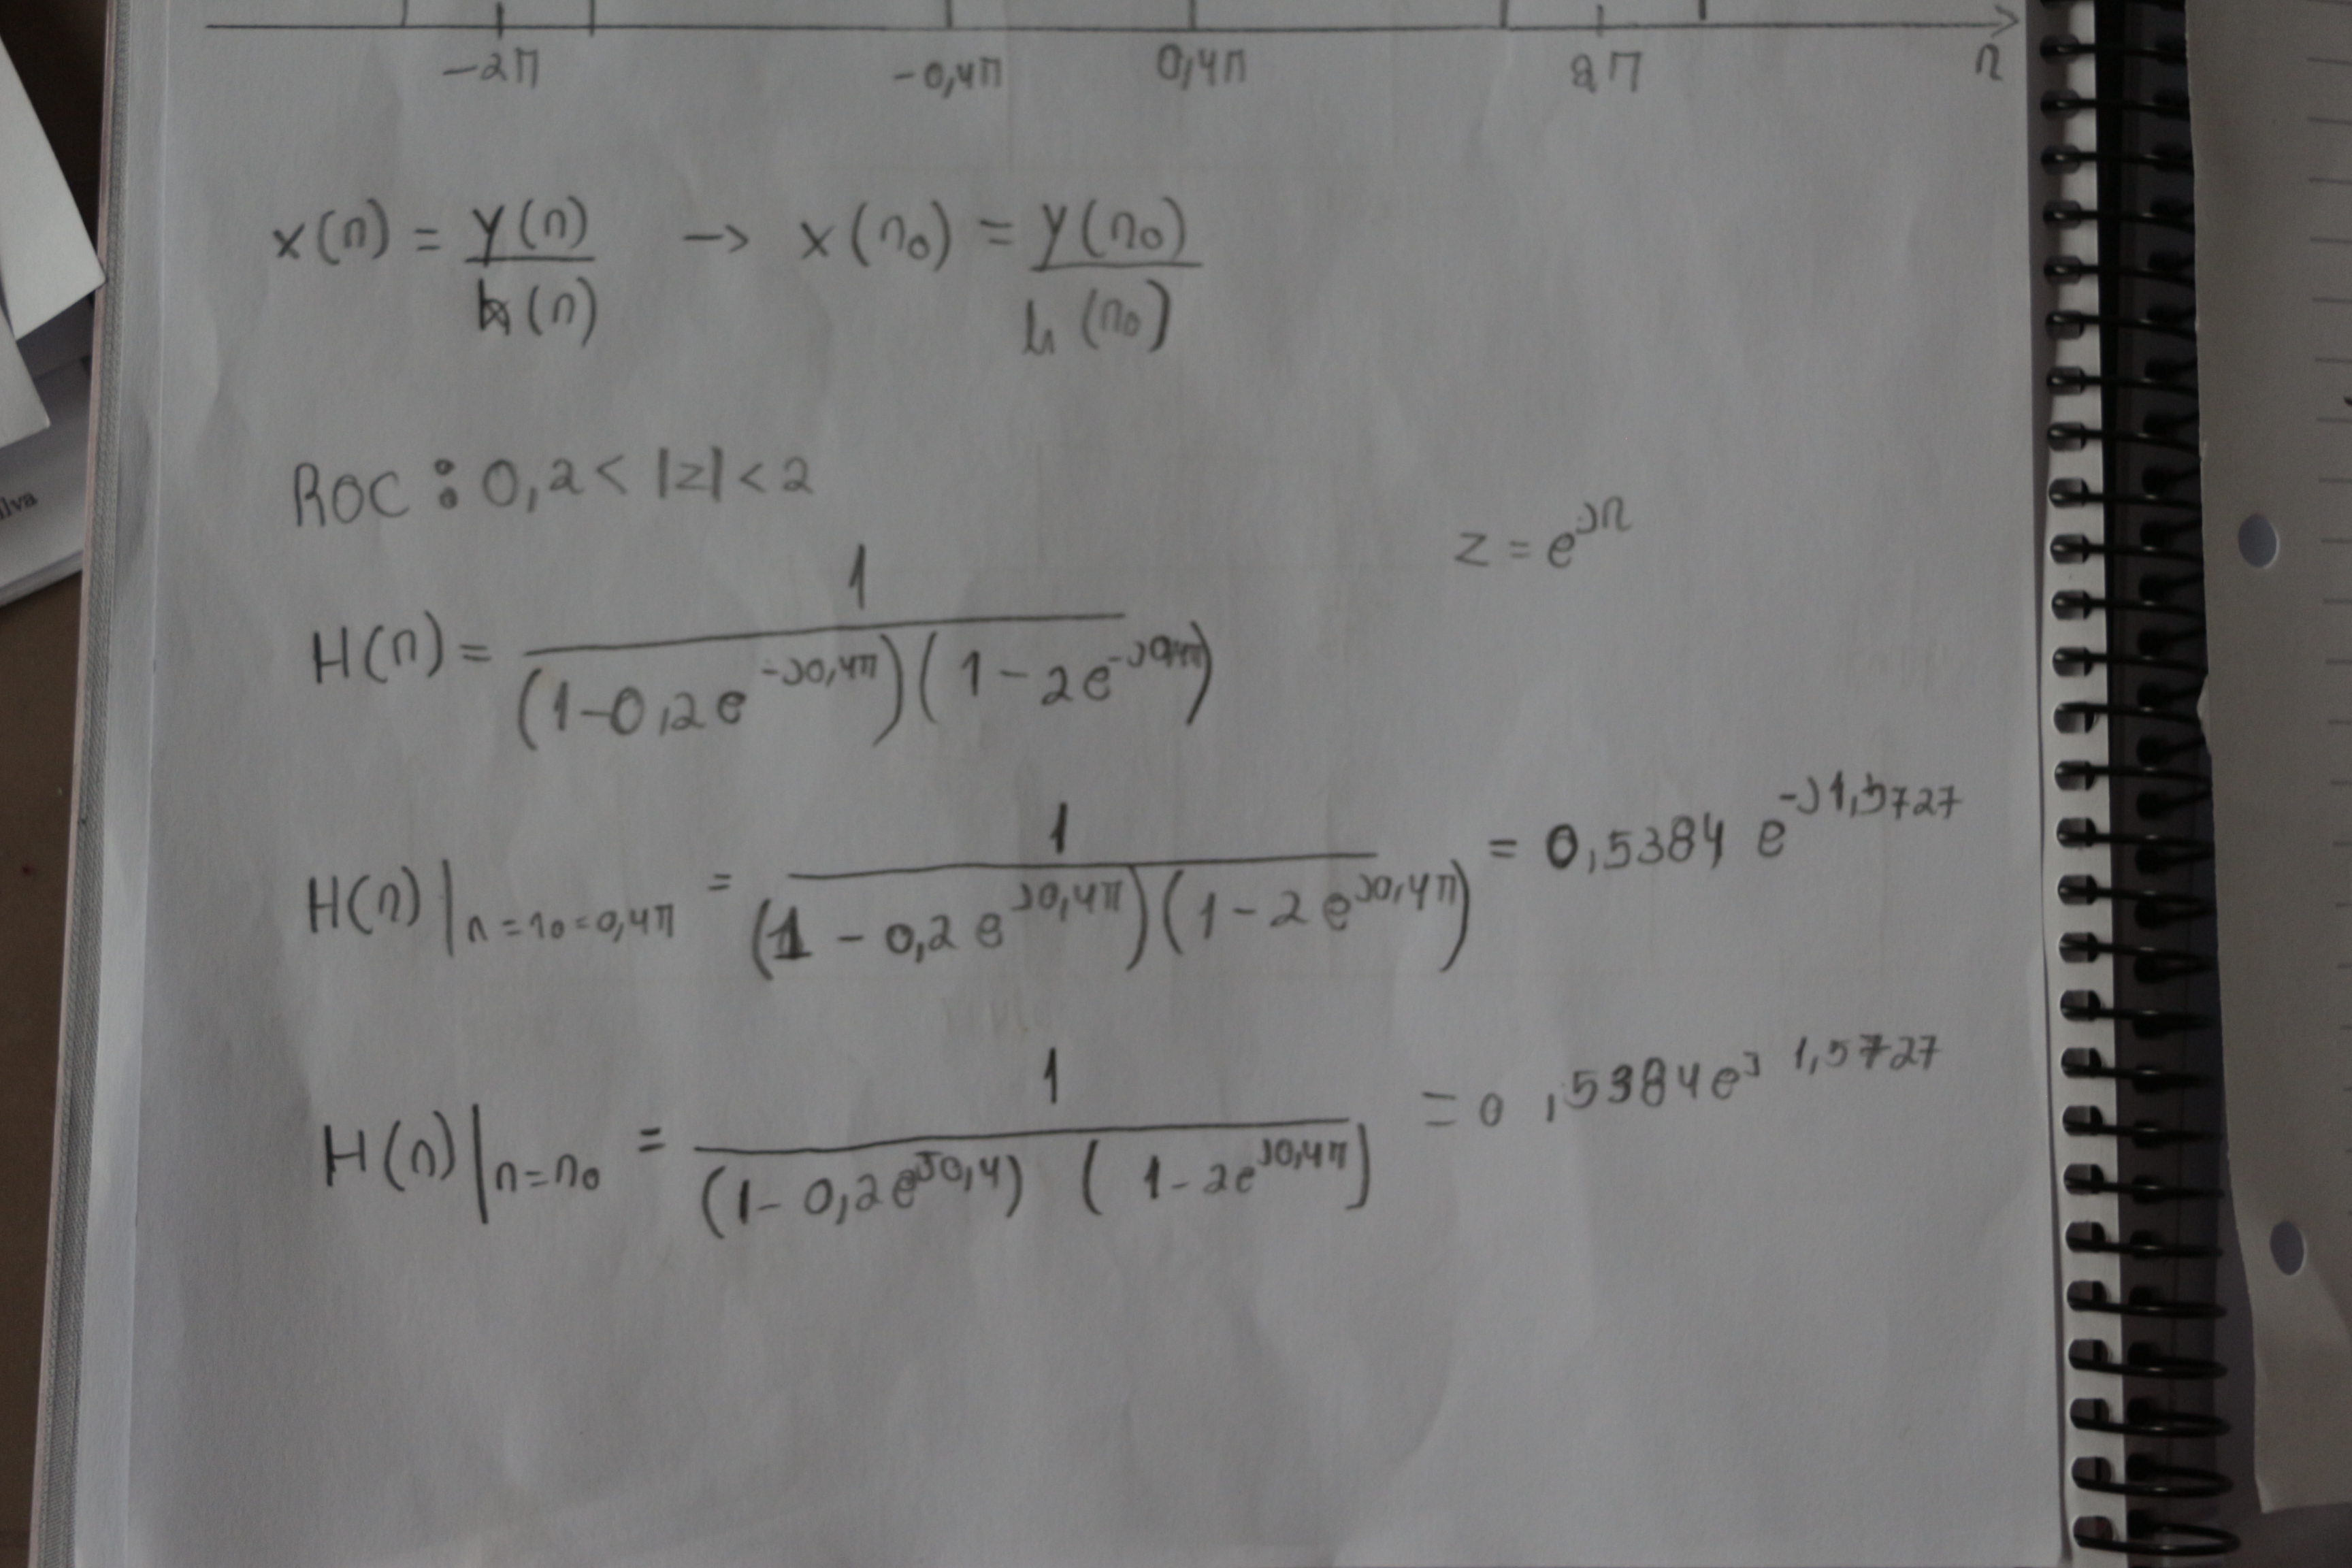 -2π -0,4π 0,4π 2π Ω
x(Ω) = y(Ω) / h(Ω) -> x(Ω0) = y(Ω0) / h(Ω0)
ilva
ROC : 0,2 < |z| < 2
z = e^{jΩ}
H(Ω) = 1 / (1-0,2e^{-j0,4π})(1-2e^{-j0,4π})
H(Ω)|Ω=Ω0=0,4π = 1 / (1-0,2e^{j0,4π})(1-2e^{j0,4π}) = 0,5384 e^{-j1,5727}
H(Ω)|Ω=Ω0 = 1 / (1-0,2e^{j0,4}) (1-2e^{j0,4π}) = 0,5384e^{j1,5727}